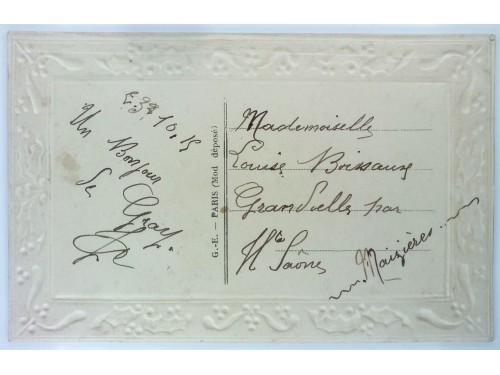 10, 15
Un Bonjour
de Gray.
G.-E. — PARIS (Mod déposé)
Mademoiselle
Louise Boissaux
Grandvelle par
Hte Saône
~ Maizières. ~